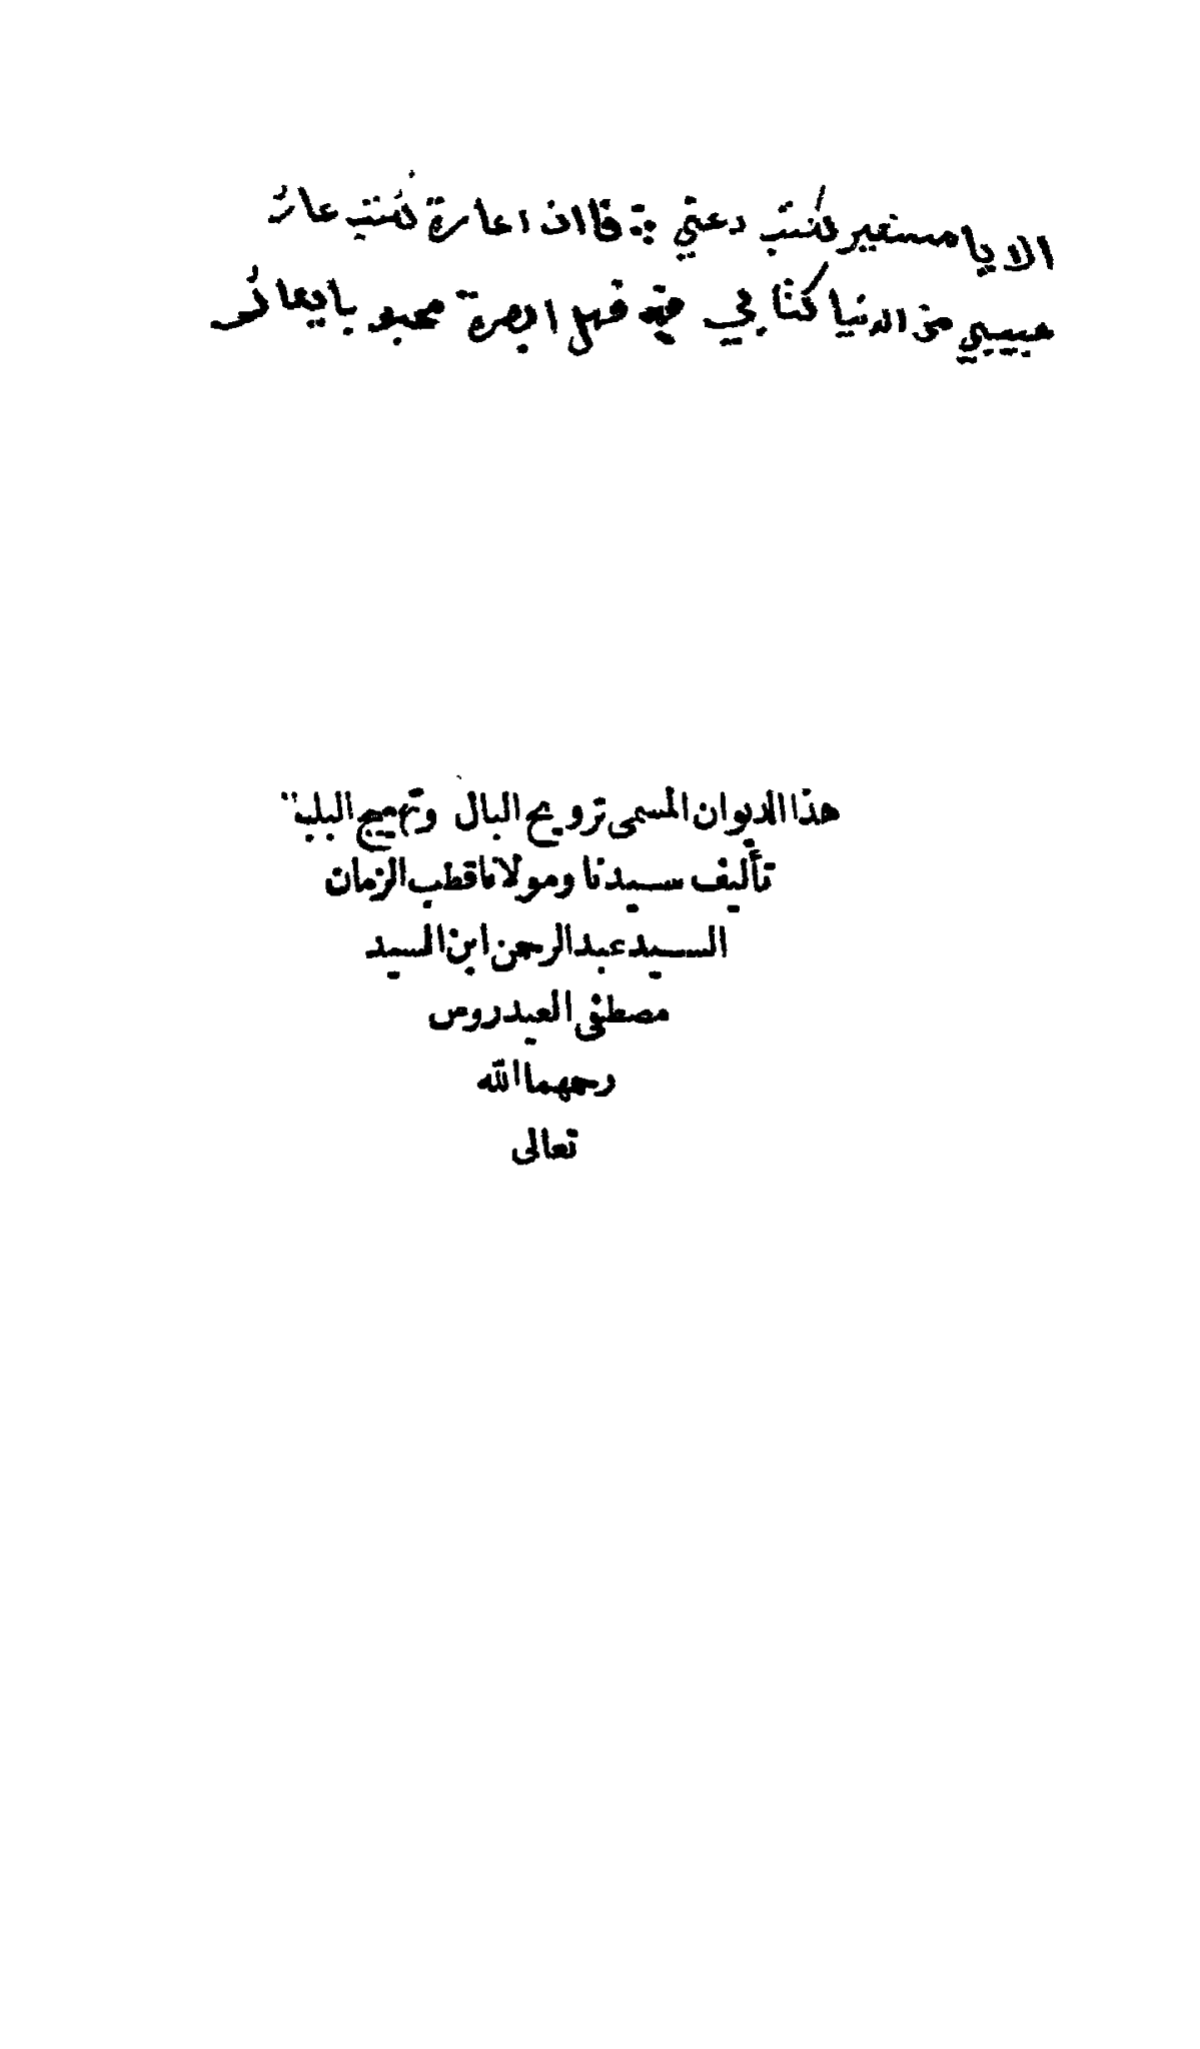 الا يا مستعير لكتب دعني ∴ فاان اعارة لكتب عار
حبيبي من الدنيا كتابي فهل ابصرة محبو با يعار
هذا الديوان المسمى ترويح البال وتهييج البلبال
تأليف سيدنا ومولانا قطب الزمان
السيد عبد الرحمن ابن السيد
مصطفى العيدروس
رحمهما الله
تعالى